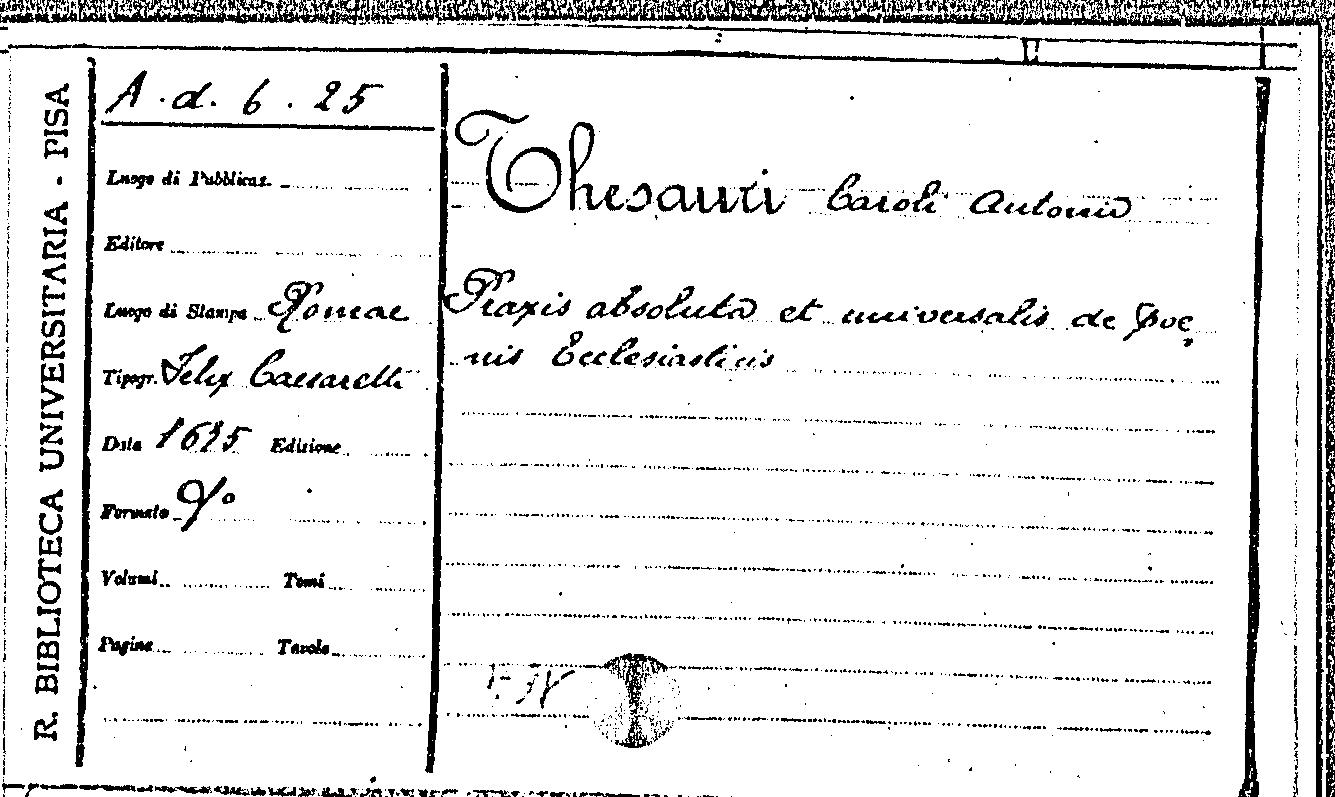 R. BIBLIOTECA UNIVERSITARIA - PISA
A. d. 6. 25
Luogo di Pubblicaz.
Editore
Luogo di Stampa Romae
Tipogr. Felix Caesaretti
Data Edizione
Formato
Volumi Tomi
Pagine Tavole
Thesauri Caroli Antonii
Praxis absoluta et universalis de Poe
nis Ecclesiasticis